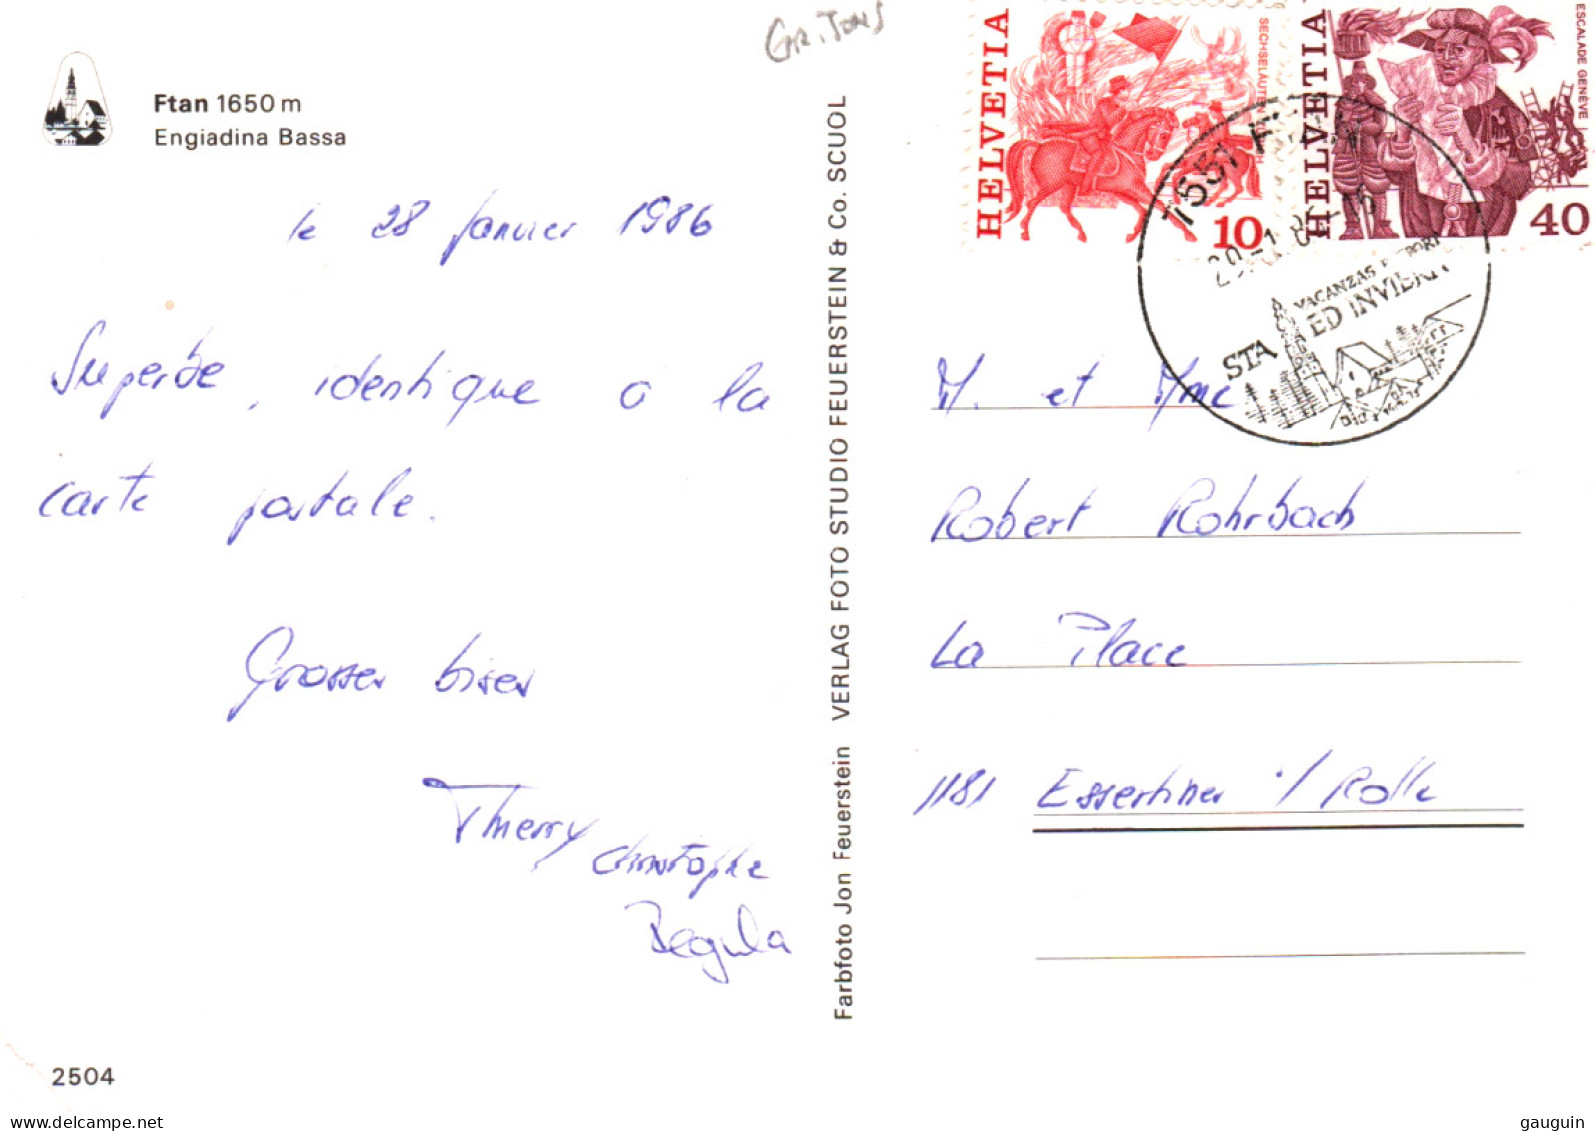 Gr. Tons
Ftan 1650 m
Engiadina Bassa
le 28 janvier 1986
Superbe, identique a la
carte postale.
Grosses bises
Thierry
Christophe
Regula
2504
Farbfoto Jon Feuerstein VERLAG FOTO STUDIO FEUERSTEIN & Co. SCUOL
HELVETIA
SECHSELÄUTEN
10
HELVETIA
ESCALADE GENÈVE
40
7551 F
VACANZAS
STA ED INVIERN
M. et Mme
Robert Rohrbach
La Place
1181 Essertines s/Rolle
www.delcampe.net
gauguin